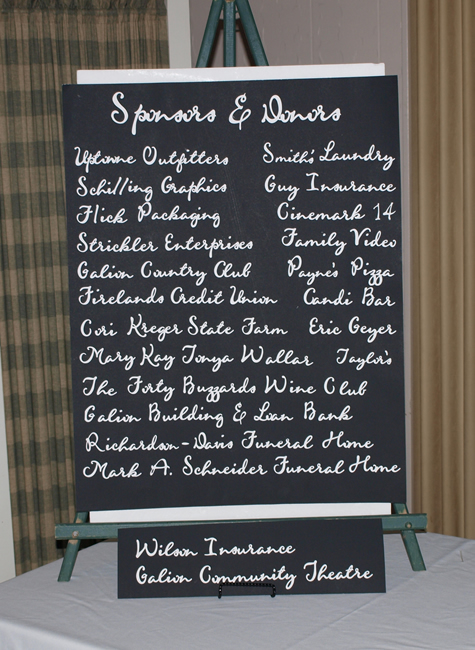 Sponsors & Donors
Uptowne Outfitters Smith's Laundry
Schilling Graphics Guy Insurance
Flick Packaging Cinemark 14
Strickler Enterprises Family Video
Galion Country Club Payne's Pizza
Firelands Credit Union Candi Bar
Cori Kreger State Farm Eric Geyer
Mary Kay Tonya Wallar Taylor's
The Forty Buzzards Wine Club
Galion Building & Loan Bank
Richardson-Davis Funeral Home
Mark A. Schneider Funeral Home
Wilson Insurance
Galion Community Theatre